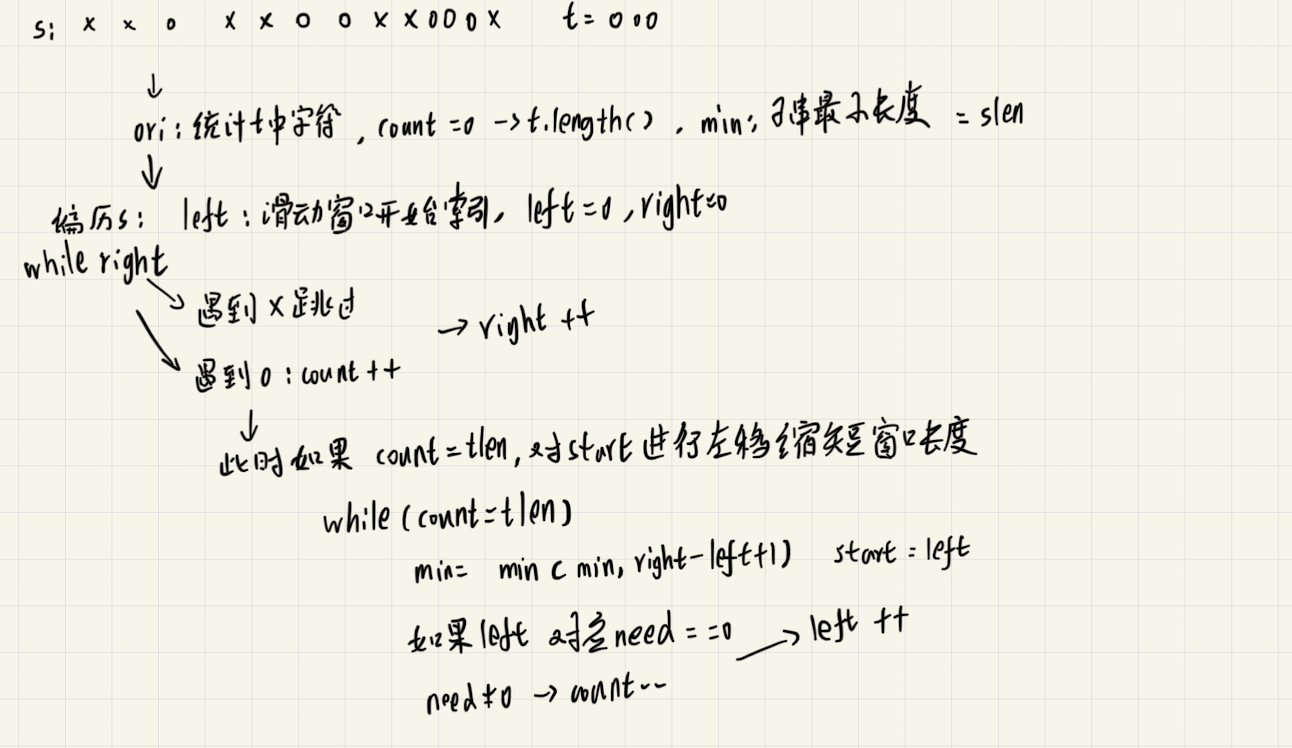 s: x x o x x o o x x o o o x t = o o o
↓
ori: 统计t中字符, count = 0 -> t.length(), min: 子串最小长度 = slen
↓
遍历s: left: 滑动窗口开始索引, left = 0, right=0
while right
↘ 遇到 x 跳过
→ right ++
↘ 遇到 o : count ++
↓
此时如果 count = tlen, 对start进行左移缩短窗口长度
while (count = tlen)
min= min ( min, right-left+1) start = left
如果left 对应need = =0 → left ++
need≠0 → count--